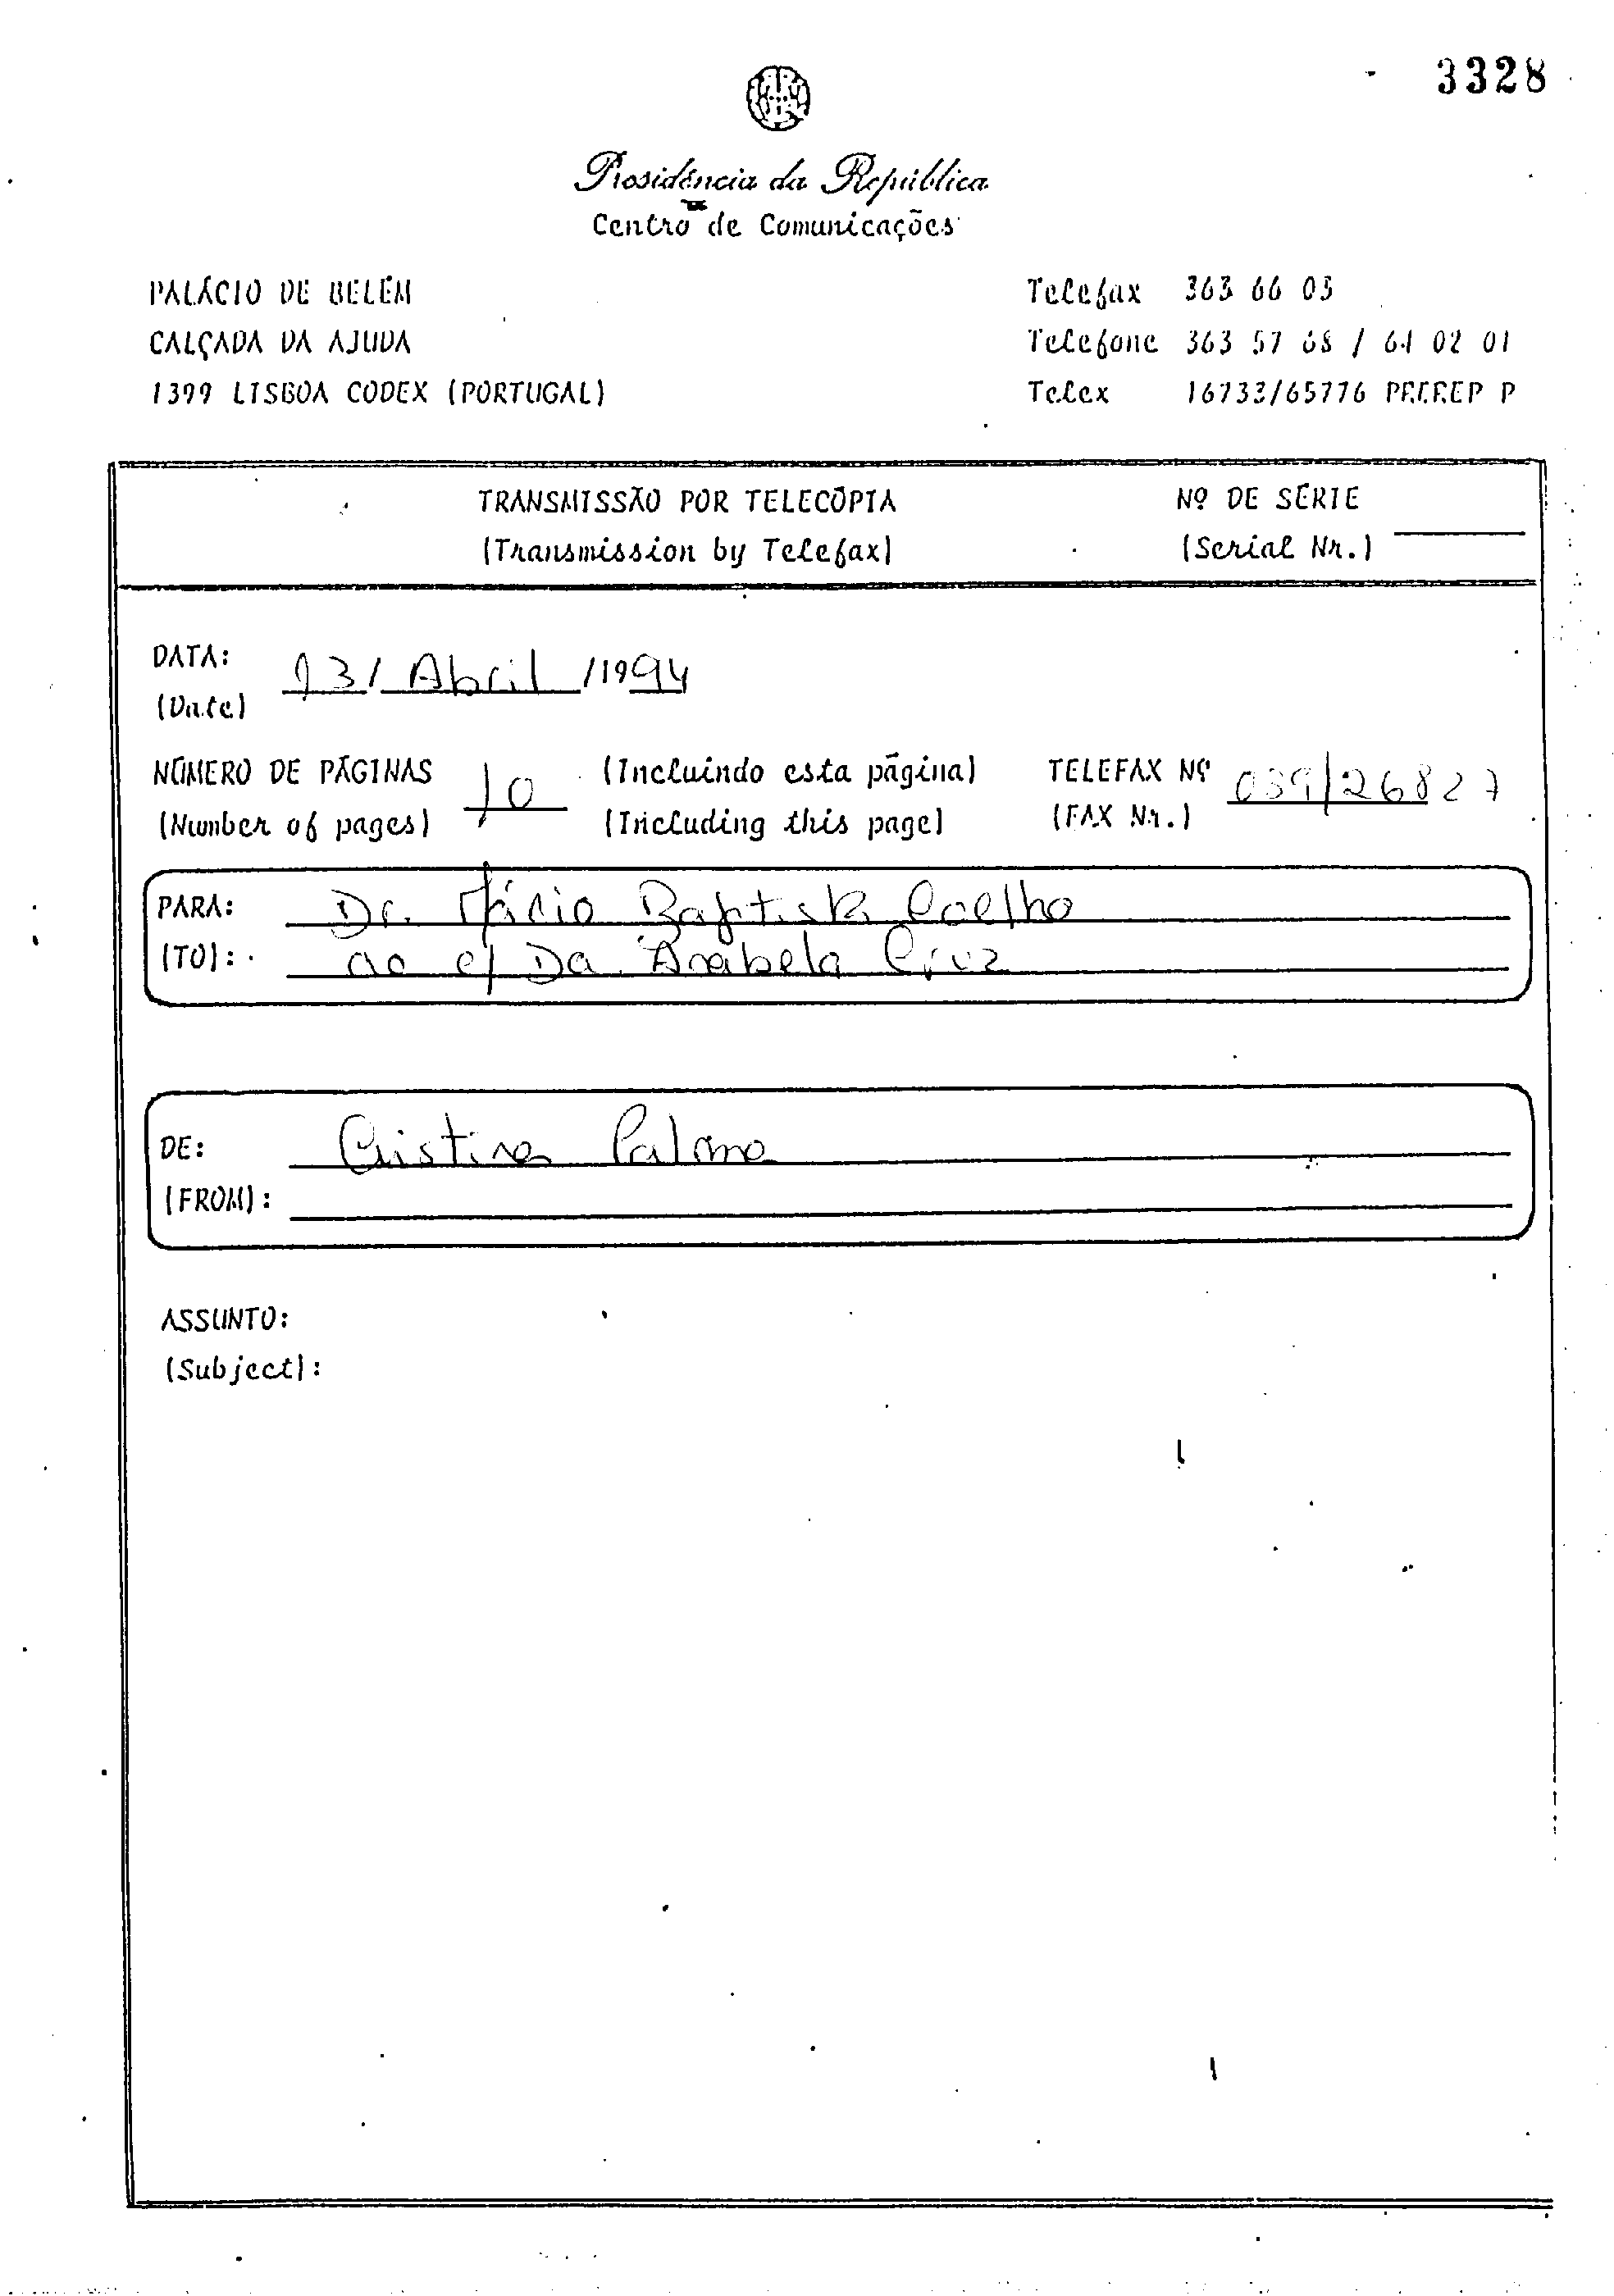 3328
Presidência da República
Centro de Comunicações
PALÁCIO DE BELÉM
CALÇADA DA AJUDA
1399 LISBOA CODEX (PORTUGAL)
Telefax 363 66 03
Telefone 363 57 68 / 64 02 01
Telex 16733/65776 PREREP P
TRANSMISSÃO POR TELECÓPIA
(Transmission by Telefax)
Nº DE SÉRIE
(Serial Nr.)
DATA: 13/ Abril /1994
(Date)
NÚMERO DE PÁGINAS 10 (Incluindo esta página)
(Number of pages) (Including this page)
TELEFAX Nº 039/26827
(FAX Nr.)
PARA: Dr. Mário Baptista Coelho
(TO): ao c/ Da. Anabela Cruz
DE: Cristina Palma
(FROM):
ASSUNTO:
(Subject):